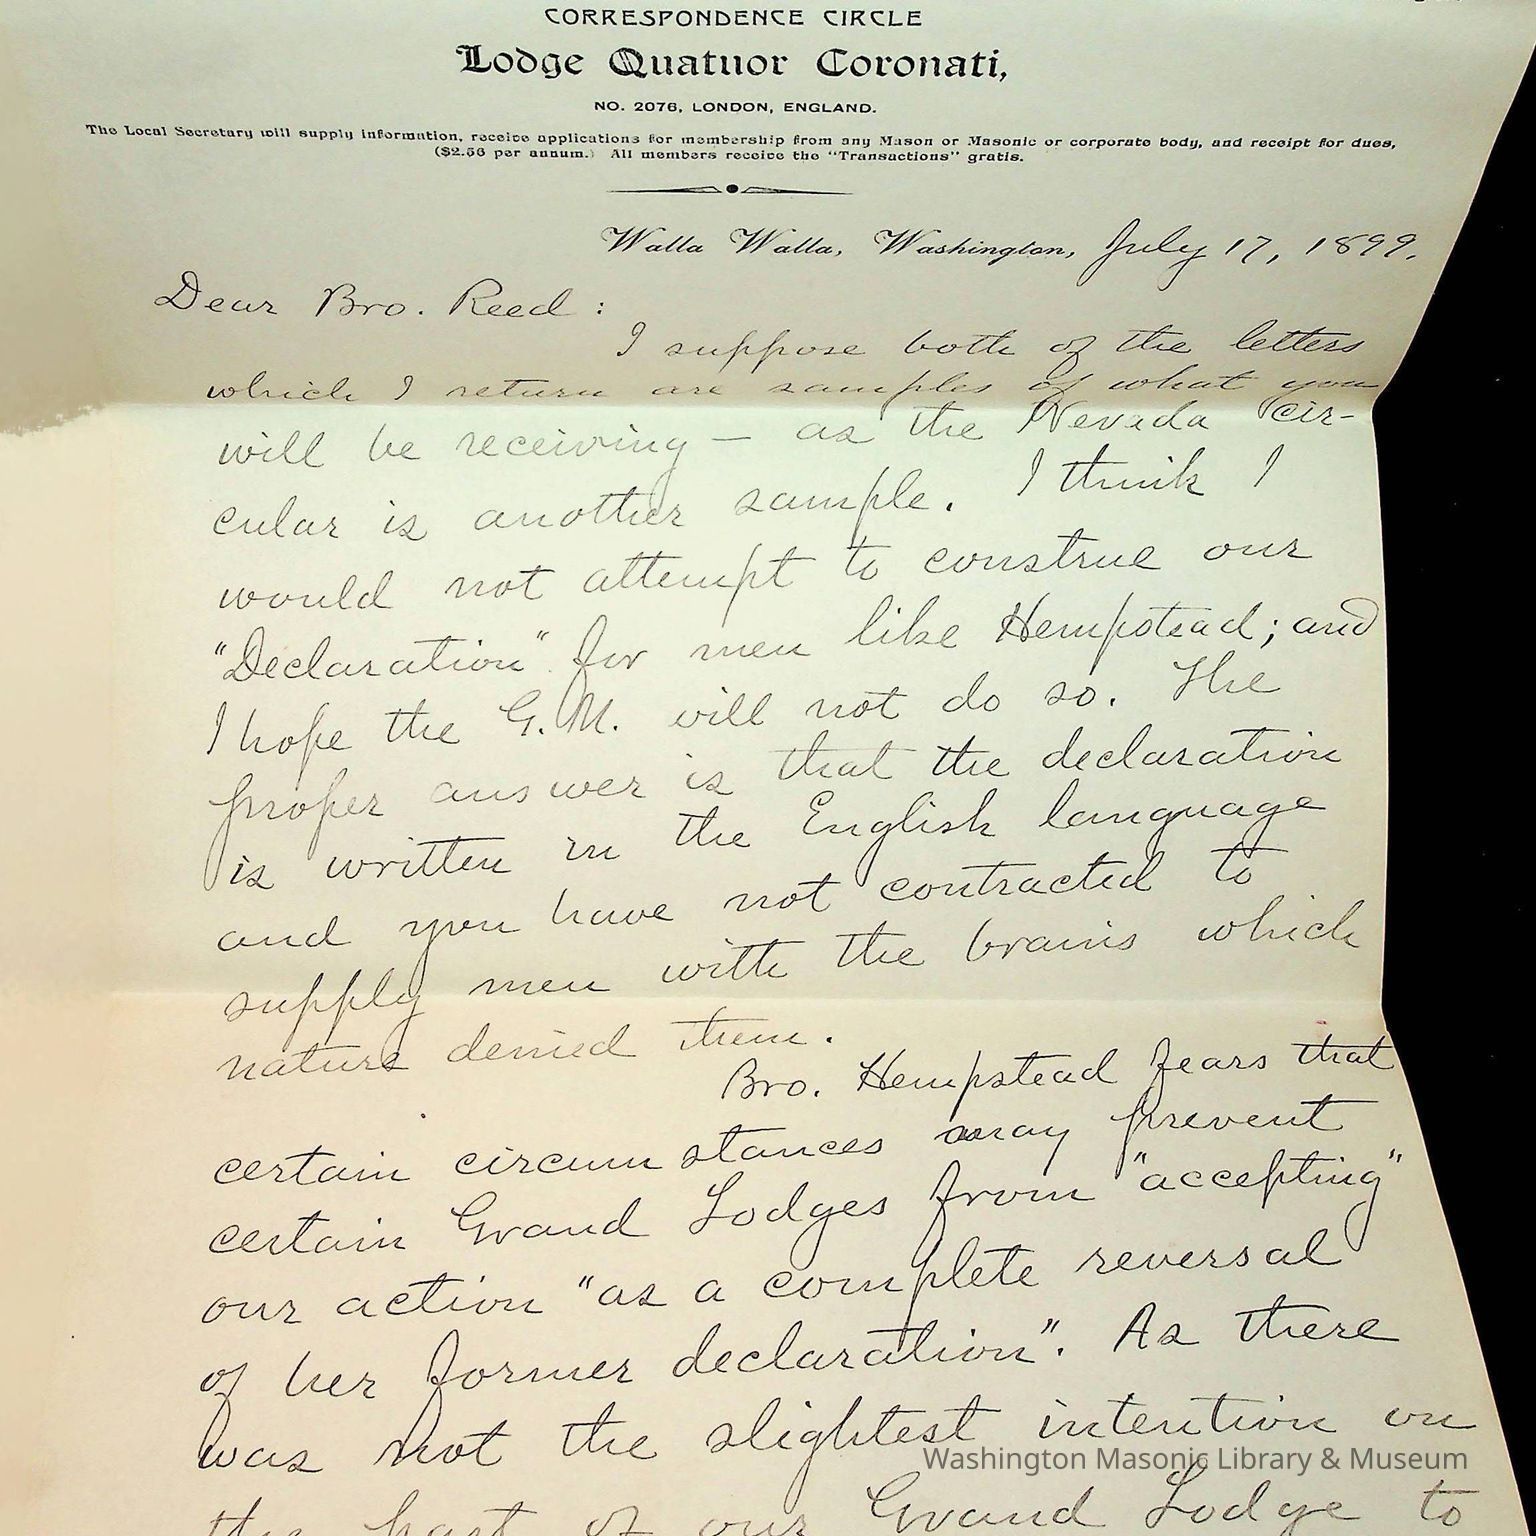 CORRESPONDENCE CIRCLE
Lodge Quatuor Coronati,
NO. 2076, LONDON, ENGLAND.
The Local Secretary will supply information, receive applications for membership from any Mason or Masonic or corporate body, and receipt for dues,
($2.56 per annum.) All members receive the "Transactions" gratis.
Walla Walla, Washington, July 17, 1899.
Dear Bro. Reed:
I suppose both of the letters
which I return are samples of what you
will be receiving — as the Nevada cir-
cular is another sample. I think I
would not attempt to construe our
"Declaration" for men like Hempstead; and
I hope the G.M. will not do so. The
proper answer is that the declaration
is written in the English language
and you have not contracted to
supply men with the brains which
nature denied them.
Bro. Hempstead fears that
certain circumstances may prevent
certain Grand Lodges from "accepting"
our action "as a complete reversal
of her former declaration". As there
was not the slightest intention on
the part of our Grand Lodge to
Washington Masonic Library & Museum